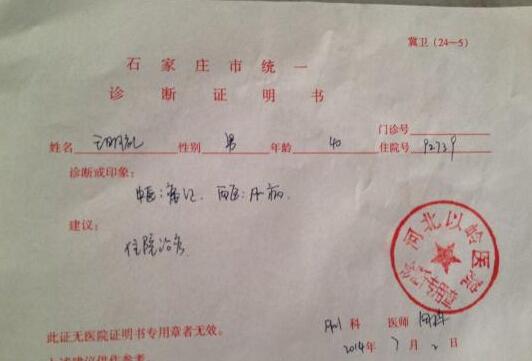 冀卫（24—5）
石家庄市统一
诊断证明书
门诊号
姓名 性别 男 年龄 40 住院号 92739
诊断或印象：
中医：
建议：
住院治疗
河北以岭医院
诊断专用章
科 医师
此证无医院证明书专用章者无效。 2014年 7月 2日
上述建议供作参考